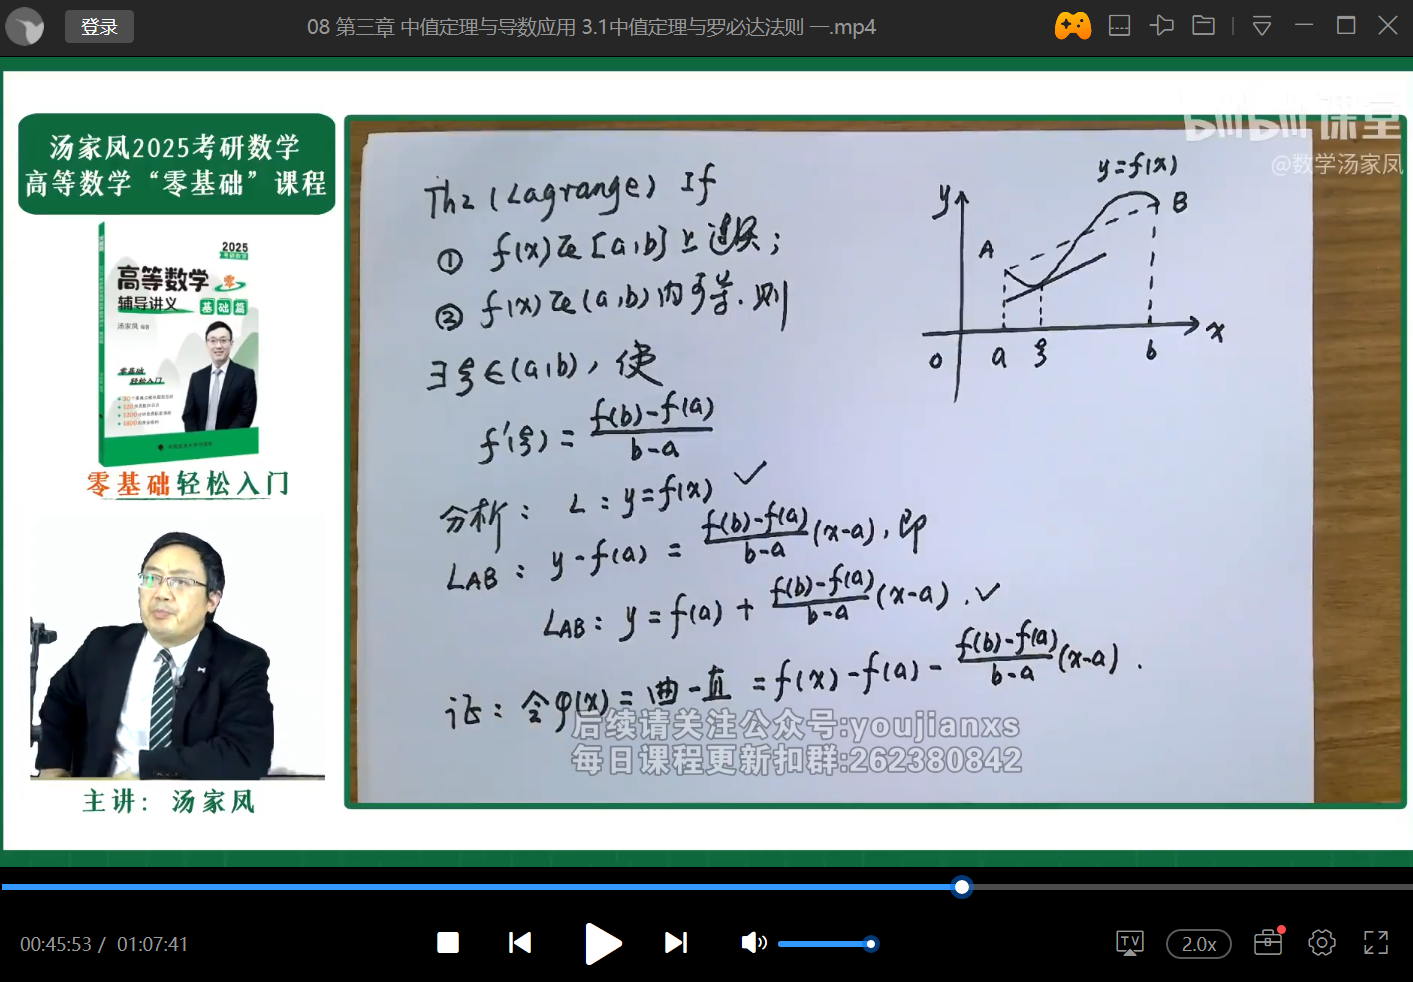 登录
08 第三章 中值定理与导数应用 3.1中值定理与罗必达法则 一.mp4
汤家凤2025考研数学
高等数学“零基础”课程
2025
高等数学
辅导讲义
零
基础篇
汤家凤
零基础
轻松入门
零基础轻松入门
主讲: 汤家凤
bilibili 课堂
@数学汤家凤
Th2 (Lagrange) If
① f(x)在[a,b]上连续;
② f(x)在(a,b)内可导.则
∃ξ∈(a,b), 使
f'(ξ) = (f(b)-f(a))/(b-a)
分析: L: y=f(x) ✓
L_AB: y-f(a) = (f(b)-f(a))/(b-a) (x-a), 即
L_AB: y=f(a) + (f(b)-f(a))/(b-a) (x-a). ✓
证: 令φ(x)=曲-直 =f(x)-f(a)- (f(b)-f(a))/(b-a) (x-a).
y=f(x)
y
B
A
x
o a ξ b
后续请关注公众号:youjianxs
每日课程更新扣群:262380842
00:45:53 / 01:07:41
TV
2.0x